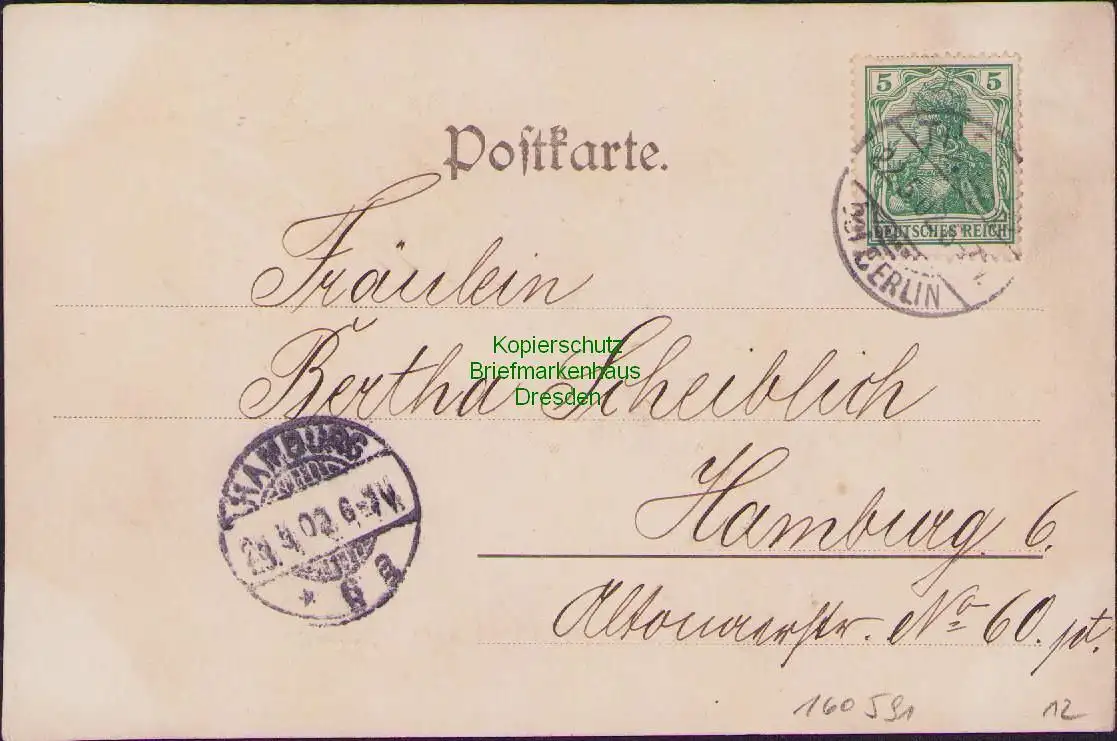 5 5
DEUTSCHES REICH
BERLIN
Postkarte.
Fräulein
Bertha Scheiblich
Kopierschutz
Briefmarkenhaus
Dresden
HAMBURG
6-7V.
* 6 a
Hamburg 6.
Altonaerstr. No 60. pt.
160591
12